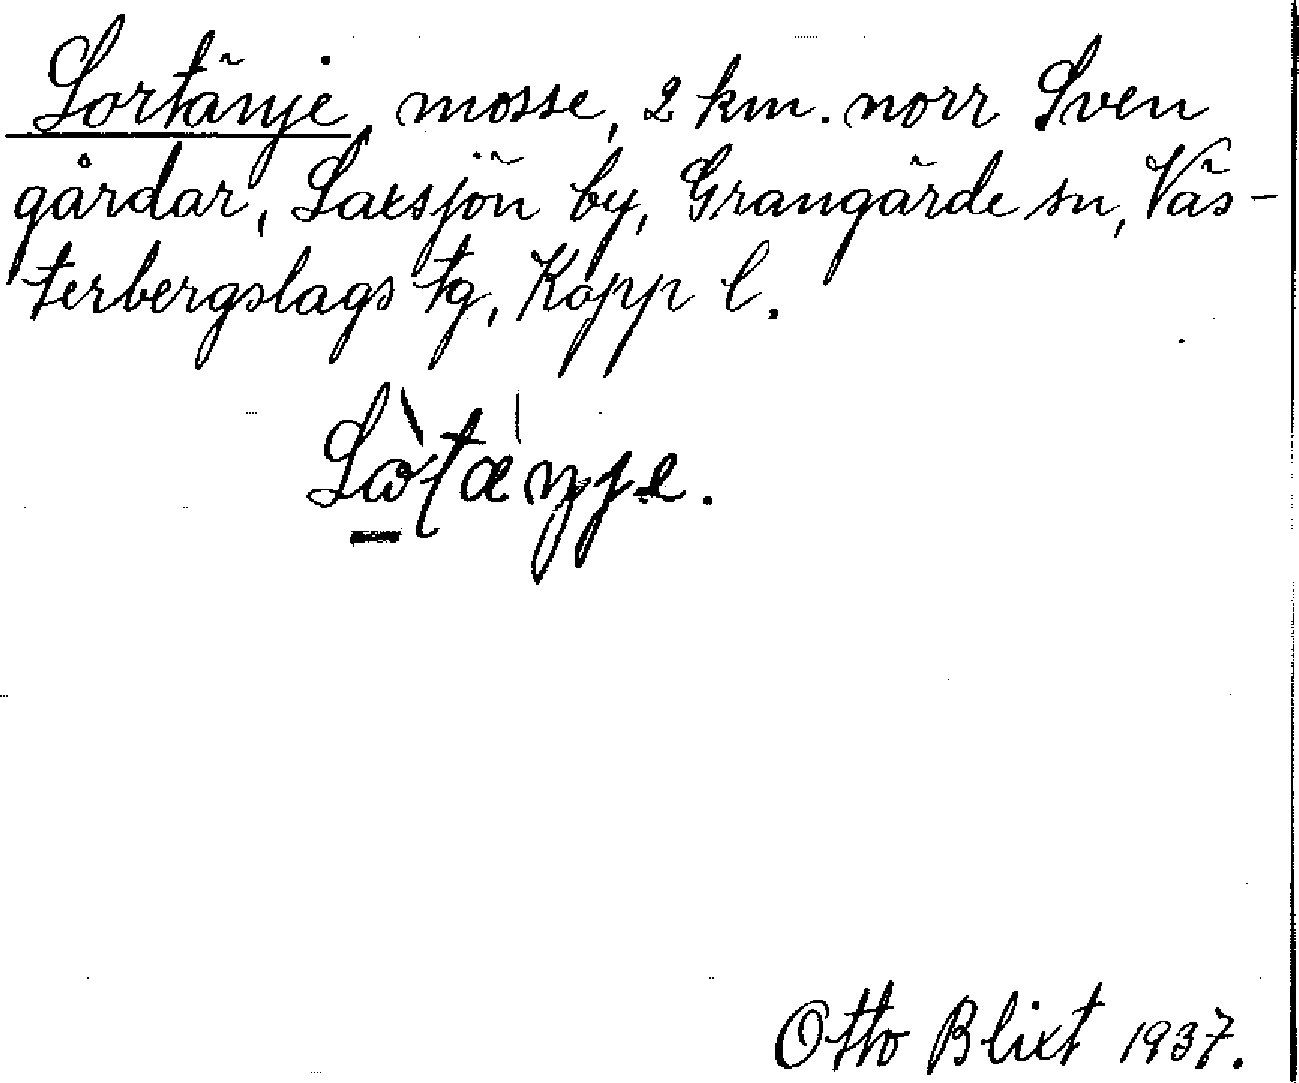 Sortänje, mosse, 2 km. norr Sven
gårdar, Saxsjön by, Grangärde sn, Väs-
terbergslags tg, Kopp l.
Otto Blixt 1937.